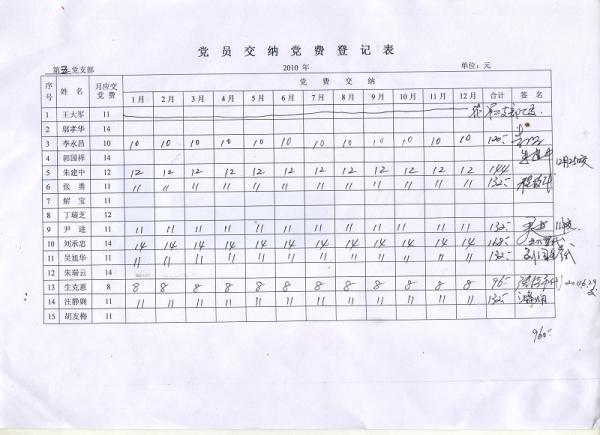 党员交纳党费登记表
第五党支部 2010 年 单位：元
序号 姓名 月应交党费 党费交纳 合计 签名
1月 2月 3月 4月 5月 6月 7月 8月 9月 10月 11月 12月
1 王大军 11
2 郜孝华 14
3 李永昌 10 10 10 10 10 10 10 10 10 10 10 10 10 120
4 郭国祥 14
5 朱建中 12 12 12 12 12 12 12 12 12 12 12 12 12 144
6 张勇 11 11 11 11 11 11 11 11 11 11 11 11 11 132
7 解宝 11
8 丁瑞芝 12
9 尹进 11 11 11 11 11 11 11 11 11 11 11 11 11 132
10 刘承忠 14 14 14 14 14 14 14 14 14 14 14 14 14 168
11 吴旭华 11 11 11 11 11 11 11 11 11 11 11 11 11 132
12 朱瑞云 14
13 生克惠 8 8 8 8 8 8 8 8 8 8 8 8 8 96
14 汪静娴 11 11 11 11 11 11 11 11 11 11 11 11 11 132
15 胡友梅 11
960